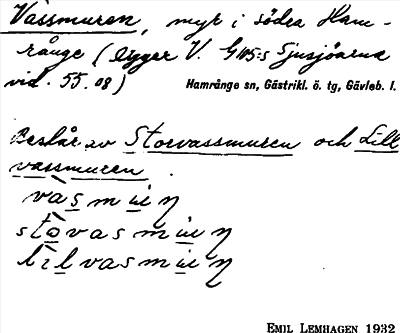 Vassmuren, myr i södra Ham-
rånge (ligger V. Gws:s Sjusjöarna
vid. 55. 08)
Hamrånge sn, Gästrikl. ö. tg, Gävleb. l.
Består av Storvassmuren och Lill
vassmuren.
EMIL LEMHAGEN 1932